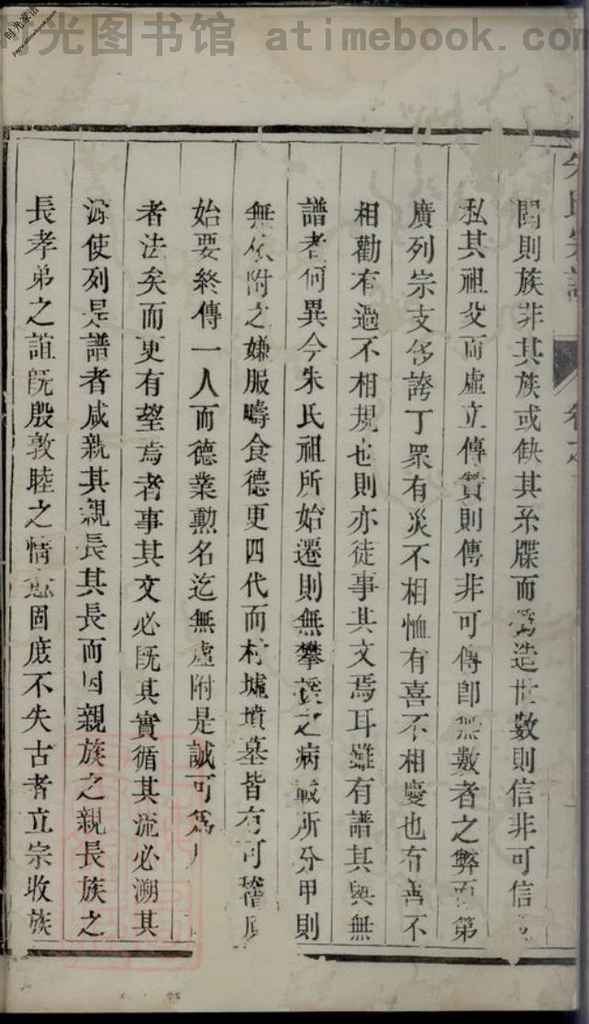 时光图书馆 atimebook.com
朱氏宗譜
卷之
閥則族非其族或缺其系牒而僞造世數則信非可信
私其祖父而虛立傳贊則傳非可傳卽無數者之弊而第
廣列宗支多誇丁衆有災不相恤有喜不相慶也有善不
相勸有過不相規也則亦徒事其文焉耳雖有譜其與無
譜者何異今朱氏祖所始遷則無攀援之病載所分甲則
無依附之嫌服疇食德更四代而村墟墳墓皆有可稽
始要終傳一人而德業勳名迄無虛附是誠可爲
者法矣而更有望焉者事其文必旣其實循其流必溯其
源使列是譜者咸親其親長其長而因親族之親長族之
長孝弟之誼旣殷敦睦之情愈固庶不失古者立宗收族